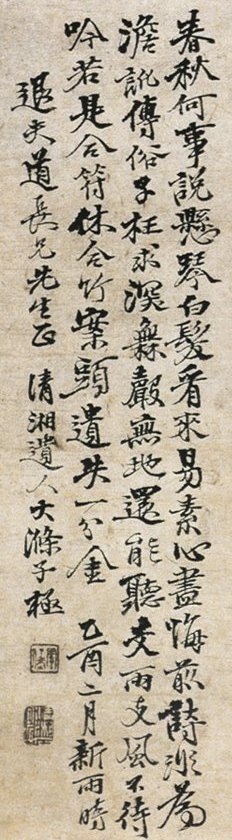 春秋何事說懸琴白髮看來易素心盡悔前詩非為
澹訛傳俗子枉求深無聲無地還能聽支雨支風不待
吟若是合符休合竹案頭遺失一分金 乙酉二月新雨時
退夫道長兄先生正 清湘遺人大滌子極